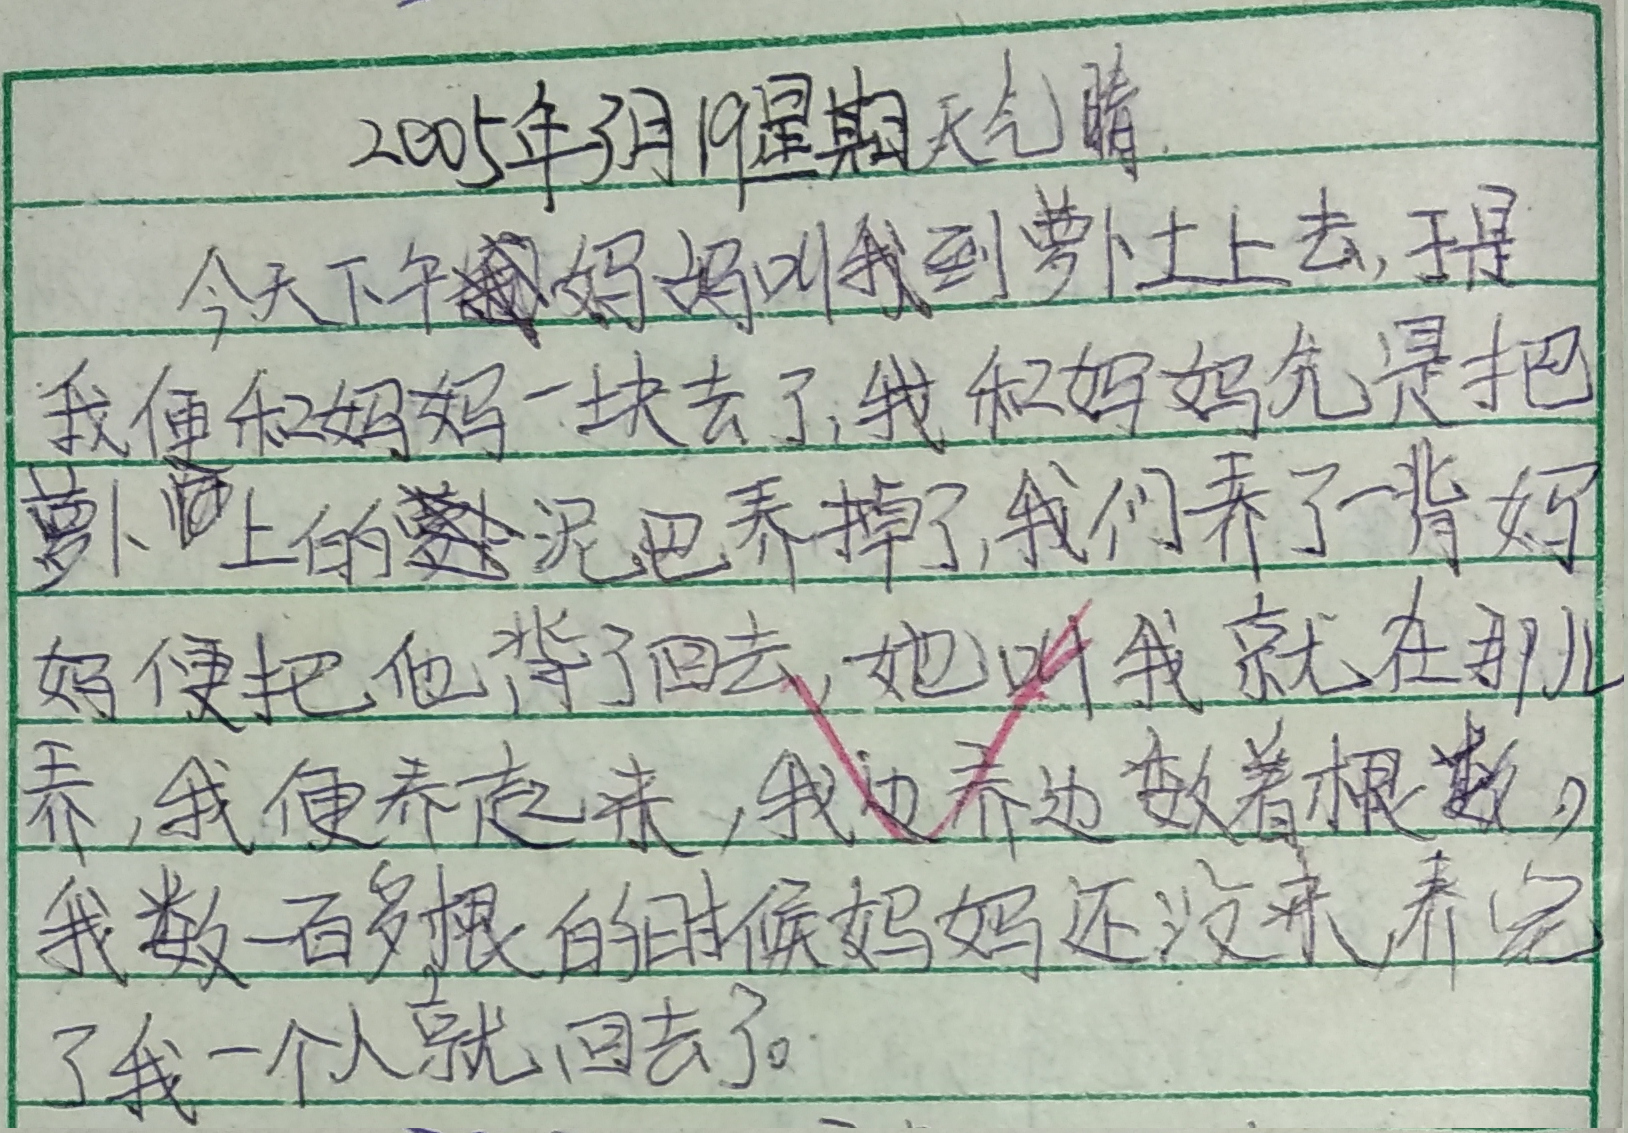 2005年3月19星期天气晴
今天下午妈妈叫我到萝卜土上去,于是
我便和妈妈一块去了,我和妈妈先是把
萝卜上的泥巴弄掉了,我们弄了一背妈
妈便把他背了回去,她叫我就在那儿
弄,我便弄起来,我边弄边数着根数,
我数一百多根的时候妈妈还没来,弄完
了我一个人就回去了。